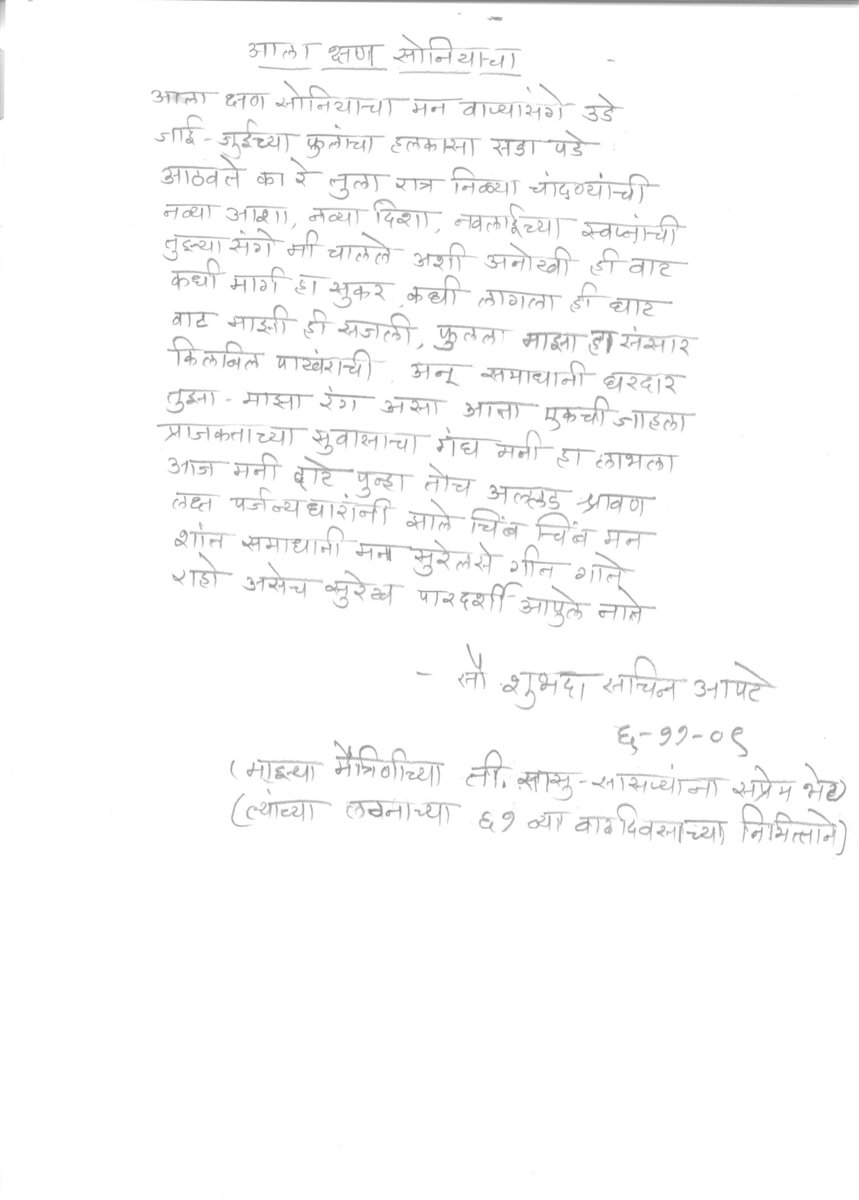 आला क्षण सोनियाचा
आला क्षण सोनियाचा मन वाऱ्यासंगे उडे
जाई-जुईच्या फुलांचा हलकासा सडा पडे
आठवते का रे तुला रात्र निळ्या चांदण्यांची
नव्या आशा, नव्या दिशा, नवलाईच्या स्वप्नांची
तुझ्या संगे मी चालले अशी अनोखी ही वाट
कधी मार्ग हा सुकर, कधी लागला ही घाट
वाट माझी ही सजली, फुलला माझा हा संसार
किलबिल पाखंराची अन् समाधानी घरदार
तुझा-माझा रंग असा आता एकची जाहला
प्राजक्ताच्या सुवासाचा गंध मनी हा लाभला
आज मनी दाटे पुन्हा तोच अल्लड श्रावण
लक्ष पर्जन्यधारांनी झाले चिंब चिंब मन
शांत समाधानी मन सुरेलसे गीत गाते
राहो असेच सुरेख पारदर्शी आपुले नाते
- सौ शुभदा सचिन आपटे
६-११-०९
(माझ्या मैत्रिणीच्या ती. सासु-सासऱ्यांना सप्रेम भेट)
(त्यांच्या लग्नाच्या ६१ व्या वाढदिवसाच्या निमित्ताने)